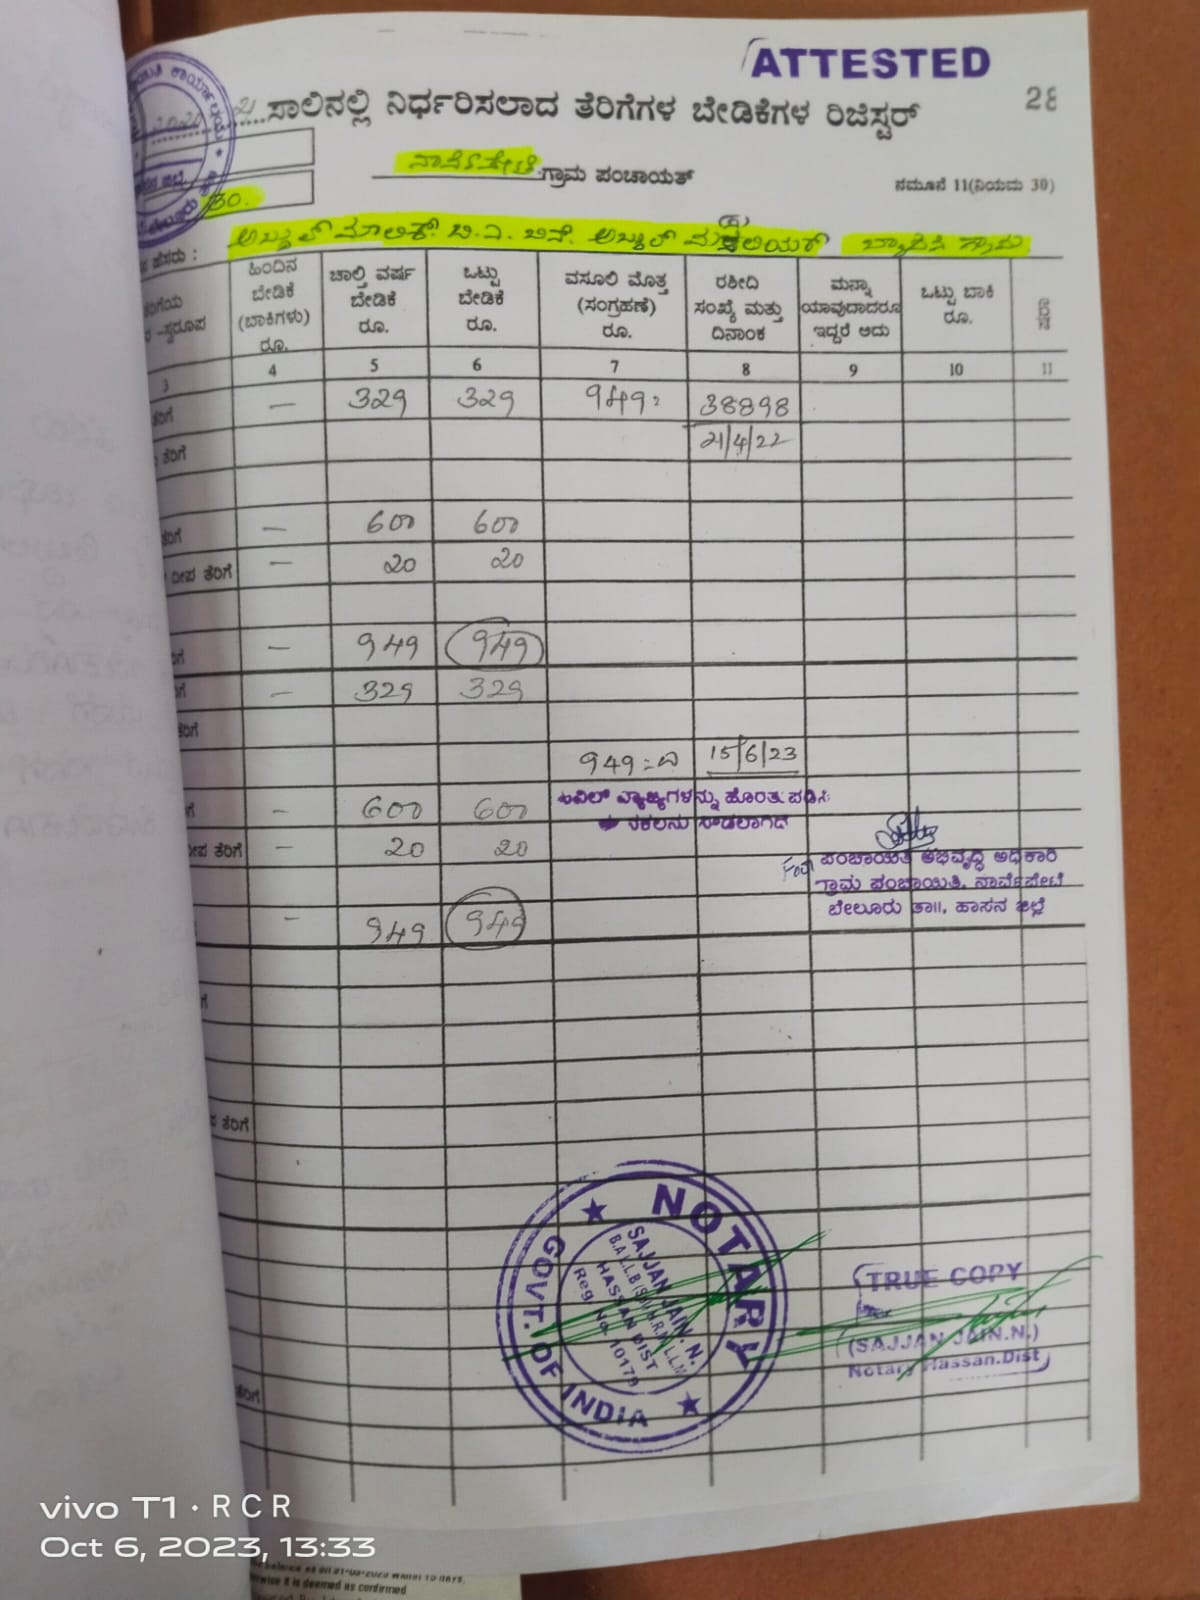 ATTESTED
28
ಸಾಲಿನಲ್ಲಿ ನಿರ್ಧರಿಸಲಾದ ತೆರಿಗೆಗಳ ಬೇಡಿಕೆಗಳ ರಿಜಿಸ್ಟರ್
ನಾರ್ವೆಪೇಟೆ ಗ್ರಾಮ ಪಂಚಾಯತ್
ನಮೂನೆ 11(ನಿಯಮ 30)
130.
ಹೆಸರು : ಅಬ್ದುಲ್ ಮಾಲಿಕ್ ಬಿ.ಎ. ಬಿನ್. ಅಬ್ದುಲ್
ಹಿಂದಿನ ಬೇಡಿಕೆ (ಬಾಕಿಗಳು) ರೂ. ಚಾಲ್ತಿ ವರ್ಷ ಬೇಡಿಕೆ ರೂ. ಒಟ್ಟು ಬೇಡಿಕೆ ರೂ. ವಸೂಲಿ ಮೊತ್ತ (ಸಂಗ್ರಹಣೆ) ರೂ. ರಶೀದಿ ಸಂಖ್ಯೆ ಮತ್ತು ದಿನಾಂಕ ಮನ್ನಾ ಯಾವುದಾದರೂ ಇದ್ದರೆ ಅದು ಒಟ್ಟು ಬಾಕಿ ರೂ.
3 4 5 6 7 8 9 10 11
— 329 329 949= 38898
ತೆರಿಗೆ 21/4/22
— 600 600
ದೀಪ ತೆರಿಗೆ — 20 20
— 949 949
— 329 329
949=00 15/6/23
— 600 600
ದೀಪ ತೆರಿಗೆ — 20 20
— 949 949
ವ್ಯಾಜ್ಯಗಳನ್ನು ಹೊರತುಪಡಿಸಿ
ನಕಲನು ನೀಡಲಾಗಿದೆ
For ಪಂಚಾಯತಿ ಅಭಿವೃದ್ಧಿ ಅಧಿಕಾರಿ
ಗ್ರಾಮ ಪಂಚಾಯಿತಿ, ನಾರ್ವೆಪೇಟೆ
ಬೇಲೂರು ತಾ||, ಹಾಸನ ಜಿಲ್ಲೆ
ತೆರಿಗೆ
NOTARY
GOVT. OF INDIA
SAJJAN JAIN. N.
HASSAN DIST
Reg No. 10179
TRUE COPY
(SAJJAN JAIN.N.)
Notary Hassan.Dist
vivo T1 · RCR
Oct 6, 2023, 13:33
erwise it is deemed as confirmed